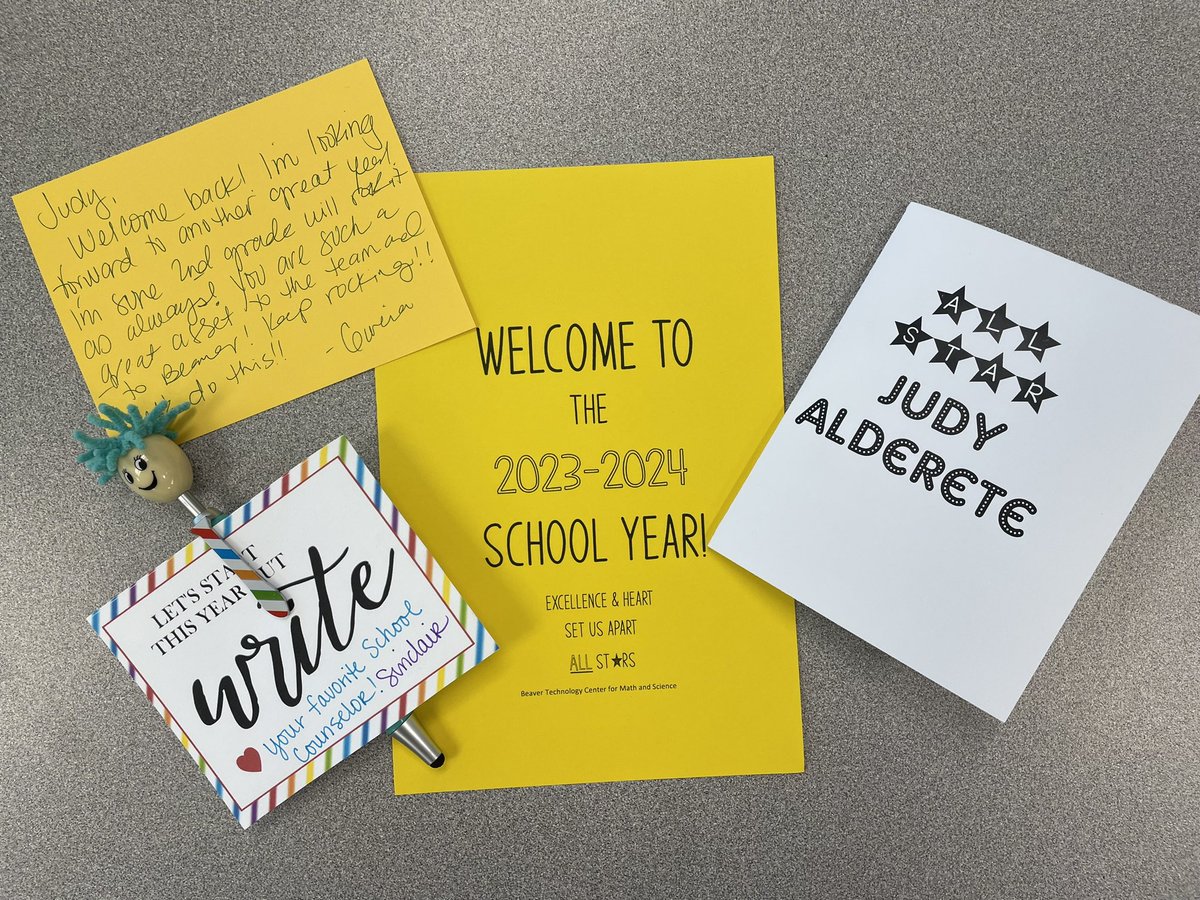 Judy,
Welcome back! I'm looking
forward to another great year.
I'm sure 2nd grade will rock it
as always! You are such a
great asset to the team and
to Beaver! Keep rocking!!
do this!! -
WELCOME TO
THE
2023-2024
SCHOOL YEAR!
EXCELLENCE & HEART
SET US APART
ALL ST★RS
Beaver Technology Center for Math and Science
ALL
STAR
JUDY
ALDERETE
LET'S START
THIS YEAR OUT
write
your favorite School
Counselor! Sinclair